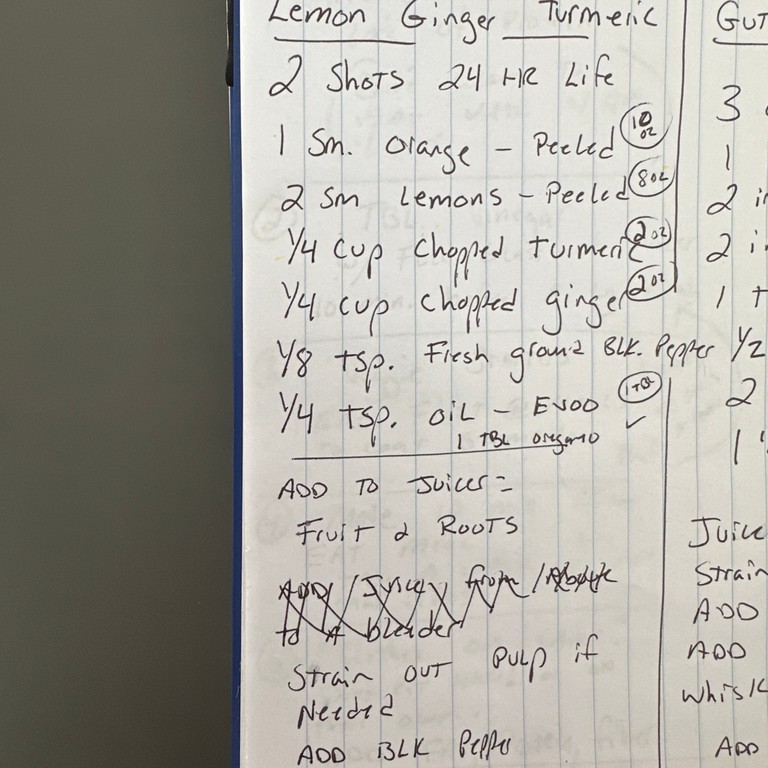 Lemon Ginger Turmeric
2 Shots 24 HR Life
1 Sm. Orange - Peeled 10 oz
2 sm Lemons - Peeled 8 oz
1/4 cup chopped turmeric 2 oz
1/4 cup chopped ginger 2 oz
1/8 tsp. Fresh ground BLK. Pepper
1/4 tsp. oil - EVOO 1 TBL ✓
1 TBL oregano
ADD TO Juicer =
Fruit & ROOTS
ADD Juice from Above
to A blender
Strain OUT PULP if
Needed
ADD BLK Pepper
GUT
3
1
2 i
2 i
1 t
1/2
2
1
Juice
Strain
ADD
ADD
whisk
ADD